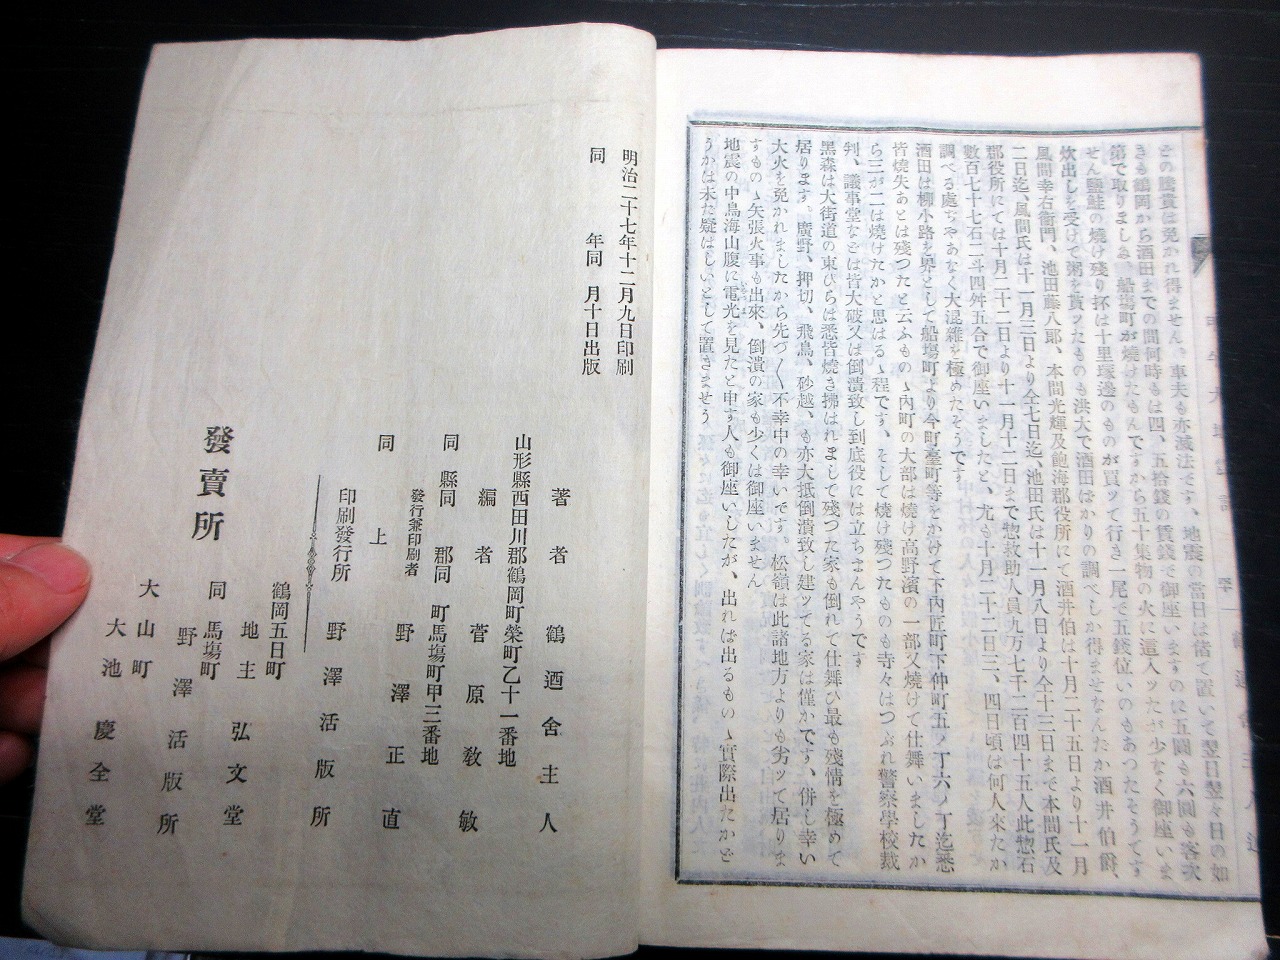 その騰貴は免かれ得ません。車夫も亦滅法です、地震の當日は偖て置いて翌日翌々日の如
きも鶴岡から酒田までの間何時もは四、五拾錢の賃錢で御座いますのに五圓も六圓も客次
第で取りましゐ、船塲町が燒けたもんですから五十集物の火に這入ッたが少なく御座いま
せん鹽鮭の燒け殘り抔は十里塚邊のものが買ッて行き一尾で五錢位いのもあつたそうです
炊出しを受けて粥を貰ッたものも洪大で酒田ばかりの調べしか得ませなんたか酒井伯爵、
風間幸右衞門、池田藤八郞、本間光輝及飽海郡役所にて酒井伯は十月二十五日より十一月
二日迄、風間氏は十一月三日より仝七日迄、池田氏は十一月八日より仝十三日まで本間氏及
郡役所にては十月二十二日より十一月十二日まで惣救助人員九万七千二百四十五人此惣石
數百七十七石二斗四舛五合で御座いましたと、尤も十月二十二日三、四日頃は何人來たか
調べる處ぢやあなく大混雜を極めたそうです。
酒田は柳小路を界として船塲町より今町臺町等をかけて下内匠町下仲町五ノ丁六ノ丁迄悉
皆燒失あとは殘つたと云ふものゝ内町の大部は燒け高野濱の一部又燒けて仕舞いましたか
ら三が二は燒けたかと思はるゝ程です、そして燒け殘つたものも寺々はつぶれ警察學校裁
判、議事堂などは皆大破又は倒潰致し到底役には立ちまんやうです
黑森は大街道の東ひらは悉皆燒き拂はれまして殘つた家も倒れて仕舞ひ最も殘情を極めて
居ります。廣野、押切、飛鳥、砂越、も亦大抵倒潰致し建ツてる家は僅かです、併し幸い
大火を免かれましたから先づ〳〵不幸中の幸いです。松嶺は此諸地方よりも劣ッて居りま
すものゝ矢張火事も出來、倒潰の家も少くは御座いません
地震の中鳥海山腹に電光を見たと申す人も御座いしたが、出れは出るものゝ實際出たかど
うかは未た疑はしいとして置きませう
明治二十七年十二月九日印刷
同 年同 月十日出版
著者 鶴廼舍主人
山形縣西田川郡鶴岡町榮町乙十一番地
編者 菅原敎敏
同縣同郡同町馬塲町甲三番地
發行兼印刷者 野澤正直
同上
印刷發行所 野澤活版所
發賣所
鶴岡五日町
地主弘文堂
同馬塲町
野澤活版所
大山町
大池慶全堂